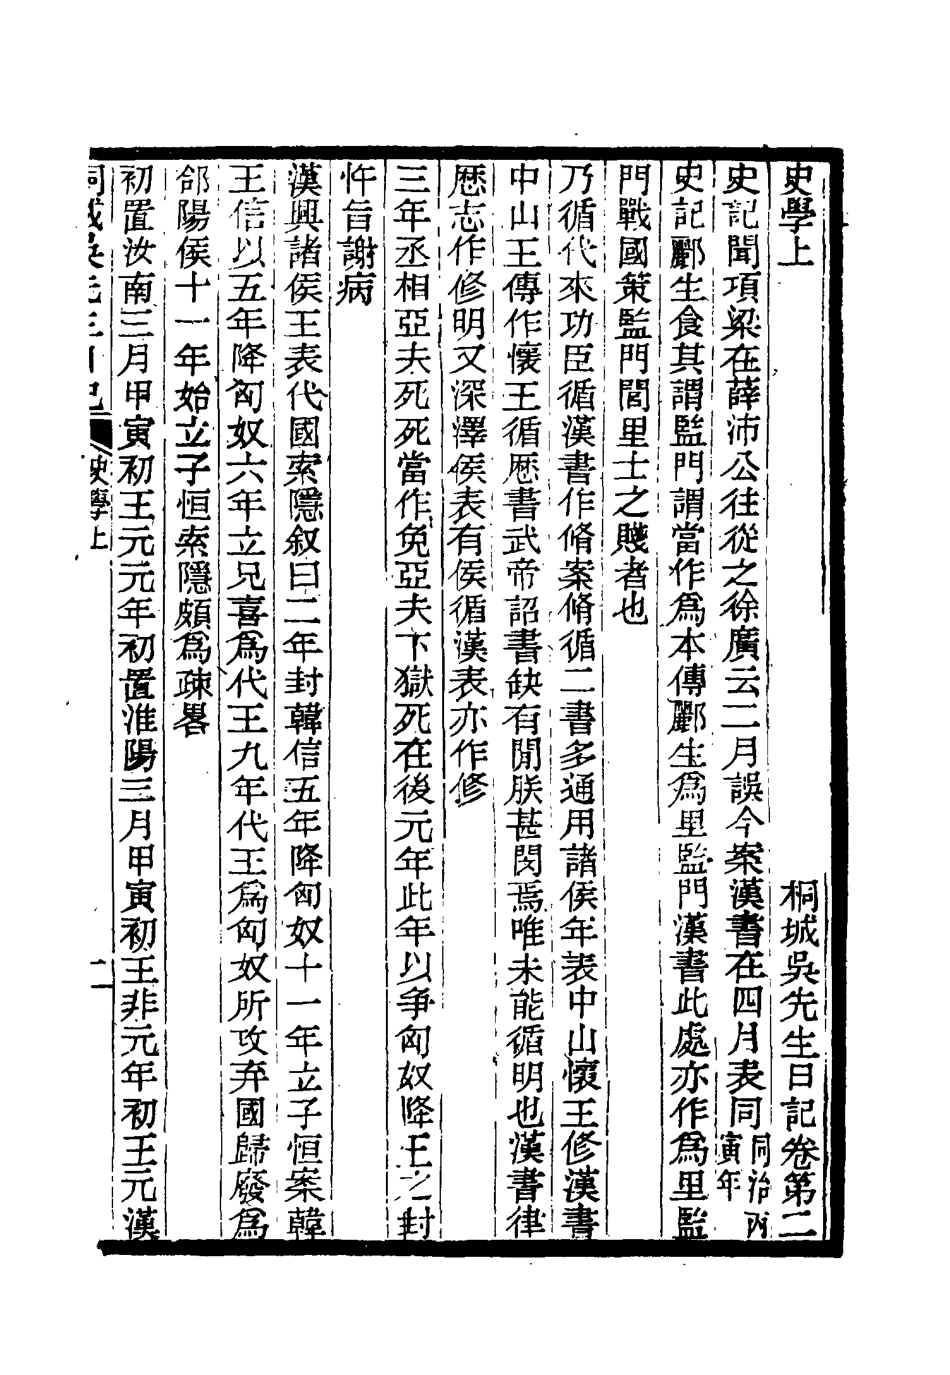 史學上　　　　　桐城吳先生日記卷第二
史記聞項梁在薛沛公往從之徐廣云二月誤今案漢書在四月表同同治丙寅年
史記酈生食其謂監門謂當作爲本傳酈生爲里監門漢書此處亦作爲里監
門戰國策監門閭里士之賤者也
乃循代來功臣循漢書作脩案脩循二書多通用諸侯年表中山懷王修漢書
中山王傳作懷王循歷書武帝詔書缺有閒朕甚閔焉唯未能循明也漢書律
歷志作修明又深澤侯表有侯循漢表亦作修
三年丞相亞夫死死當作免亞夫下獄死在後元年此年以爭匈奴降王之封
忤旨謝病
漢興諸侯王表代國索隱叙曰二年封韓信五年降匈奴十一年立子恒案韓
王信以五年降匈奴六年立兄喜爲代王九年代王爲匈奴所攻弃國歸廢爲
郃陽侯十一年始立子恒索隱頗爲疎畧
初置汝南三月甲寅初王元元年初置淮陽三月甲寅初王非元年初王元漢
桐城吳先生日記　史學上　二